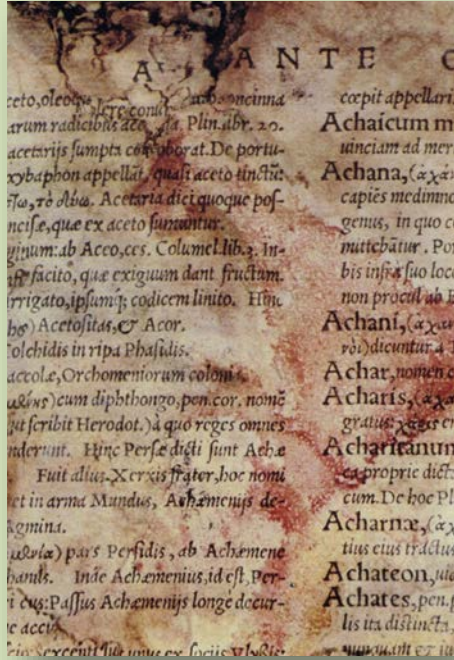 A ANTE C
ceto,oleoq; conut oncinna
arum radicibus Plin.libr. 20.
acetarijs sumpta corroborat.De portu-
xybaphon appellāt, quasi aceto tinctū:
τὸ ὀξύω. Acetaria dici quoque pos-
ncisæ,quæ ex aceto sumuntur.
ginum:ab Aceo,ces. Columel.lib.3. In-
facito, quæ exiguum dant fructum.
irrigato,ipsumq; codicem linito. Hinc
Acetositas,& Acor.
Colchidis in ripa Phasidis.
accolæ,Orchomeniorum coloni.
cum diphthongo,pen.cor. nomē
ut scribit Herodot.)à quo reges omnes
nderunt. Hinc Persæ dicti sunt Achæ
Fuit alius.Xerxis frater,hoc nomi
et in arma Mundus, Achæmenijs de-
Agmina.
pars Persidis, ab Achæmene
Inde Achæmenius,id est,Per-
cus:Passus Achæmenijs longè decur-
e acciu
ex socijs Vlyssis:
cœpit appellari
Achaicum m
uinciam ad mer
Achana,(ἀχα
capiēs medimno
genus, in quo co
mittebātur. Por
bis infra suo loco
non procul ab E
Achani,(ἀχαν
dicuntur à
Achar,nomen
Acharis,(ἄχα
gratus:χάρις en
Acharitanum
ea proprie dict
cum.De hoc Pl
Acharnæ,(ἀχ
tius eius tractus
Achateon,
Achates,pen.p
lis ita distincta,
nunquam et in